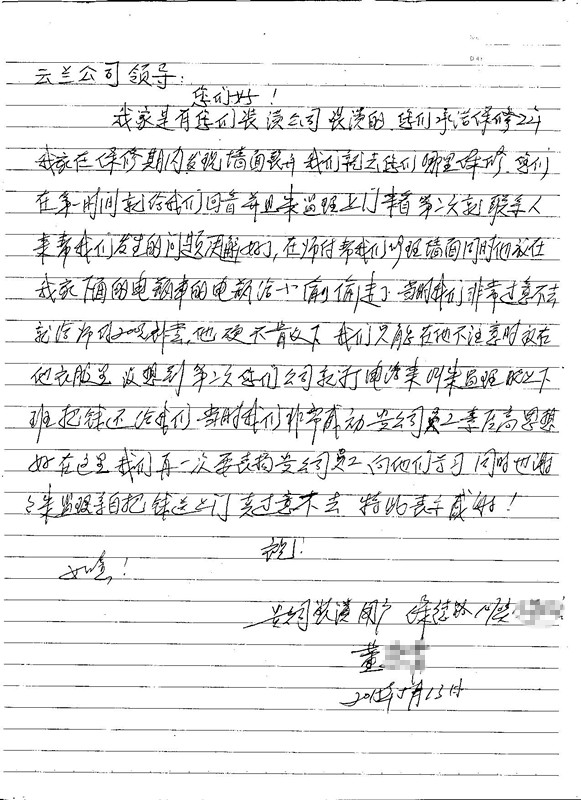 云兰公司领导:
您们好!
我家是有您们装潢公司装潢的,您们承诺保修2年
我家在保修期内发现墙面裂开我们就去您们哪里保修.您们
在第一时间就给我们回音并且朱监理上门来看第二次就联系人
来帮我们发生的问题调解好了,在师付帮我们修理墙面同时他放在
我家下面的电瓶车的电瓶给小偷偷走了当时我们非常过意不去
就给师付200补贴,他硬不肯收下我们只能在他不注意时放在
他衣服里没想到第二次您们公司就打电话来叫朱监理晚上下
班把钱还给我们.当时我们非常感动贵公司员工素质高思想
好在这里我们再一次要表扬贵公司员工向他们学习同时也谢
谢朱监理亲自把钱送上门真过意不去 特此表示感谢!
致
如意!
贵公司装潢用户
董
5月13日